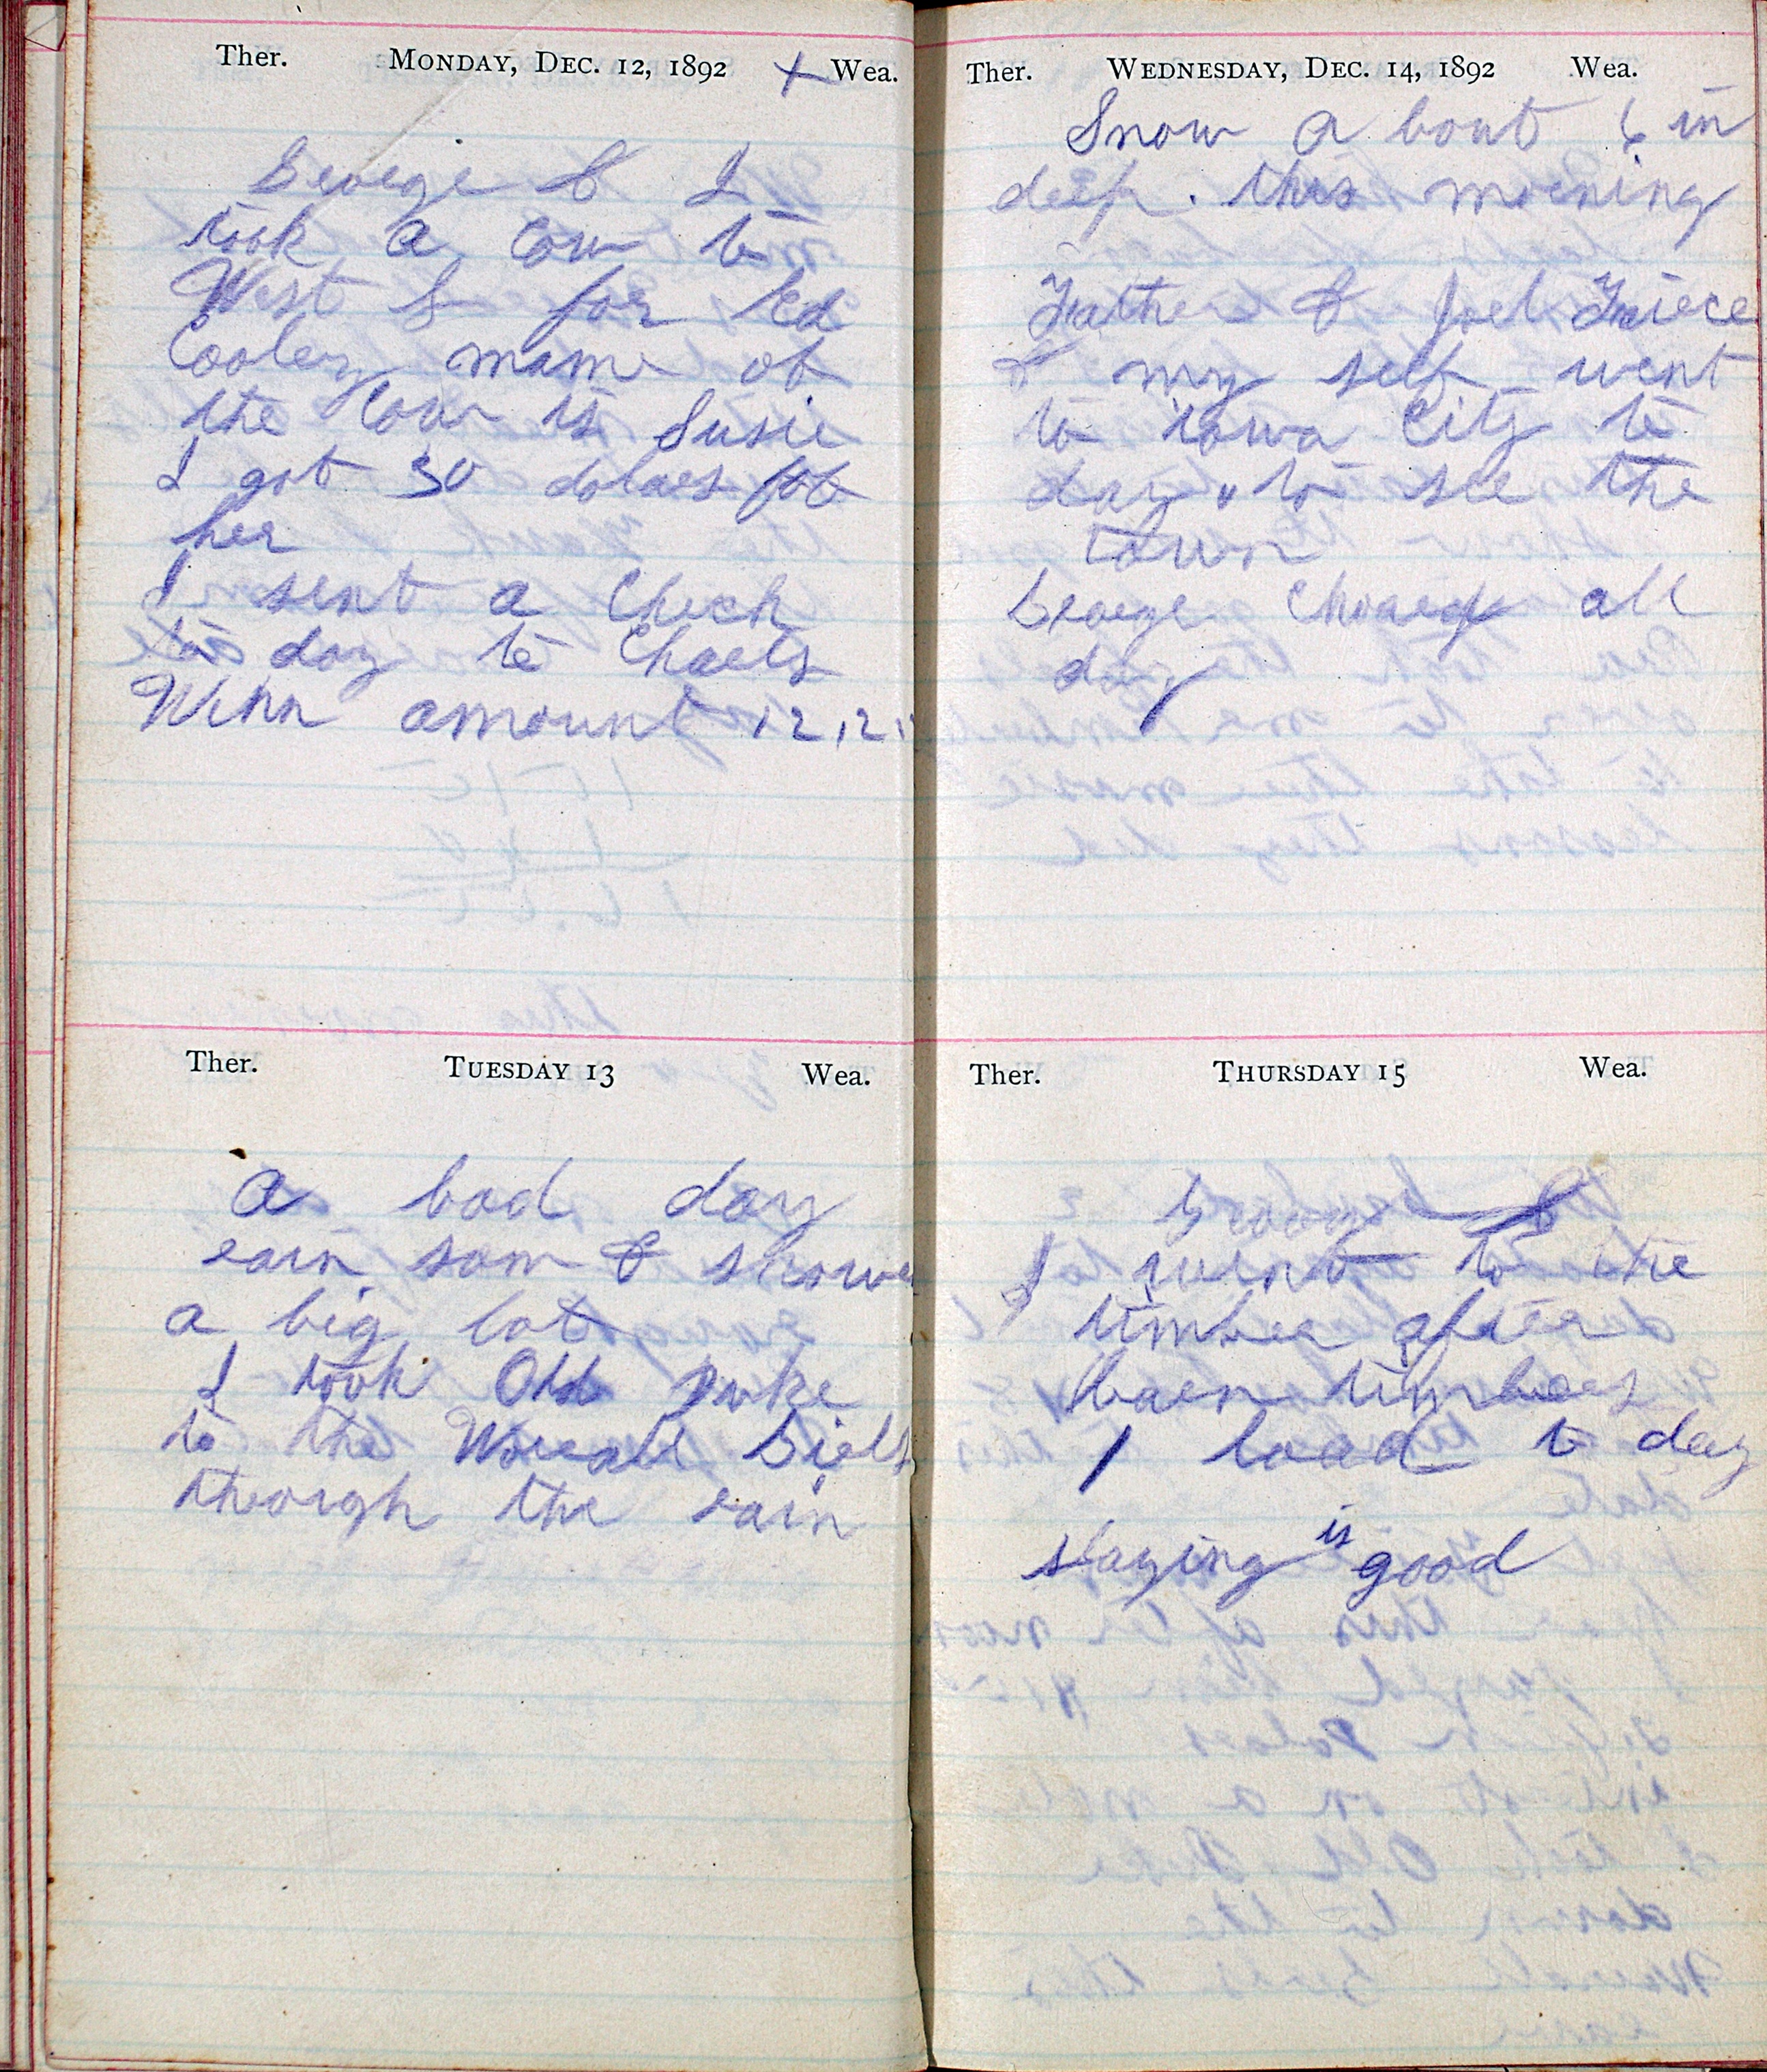 Ther. MONDAY, DEC. 12, 1892 Wea.
George & I
took a Cow to
West L for Ed
Cooley name of
the Cow is Susie
I got 30 dolars for
her
I sent a Check
to day to Charls
Winn amount 12,12
Ther. TUESDAY 13 Wea.
A bad day
rain som & snowe
a big lot
I took Old Duke
to the Worrall Girls
through the rain
Ther. WEDNESDAY, DEC. 14, 1892 Wea.
Snow a bout 6 in
deep. this morning
Father & Joel
& my self went
to iowa City to
day to see the
town
George Chored all
day
Ther. THURSDAY 15 Wea.
George &
I went to the
timber after
barn timbers
1 load to day
slaying is good